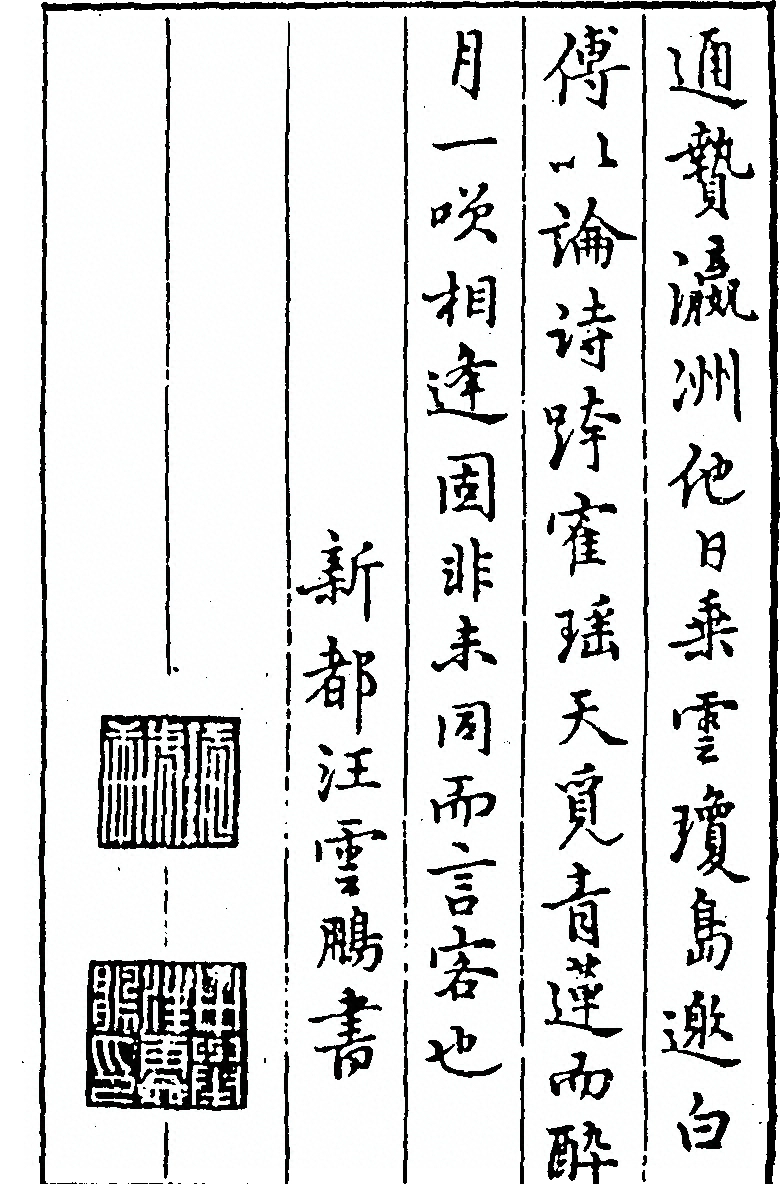 通贄瀛洲他日乗雲瓊島邀白
傅以論诗跨寉瑶天覓青蓮而醉
月一咲相逢固非未同而言客也
新都汪雲鵬書